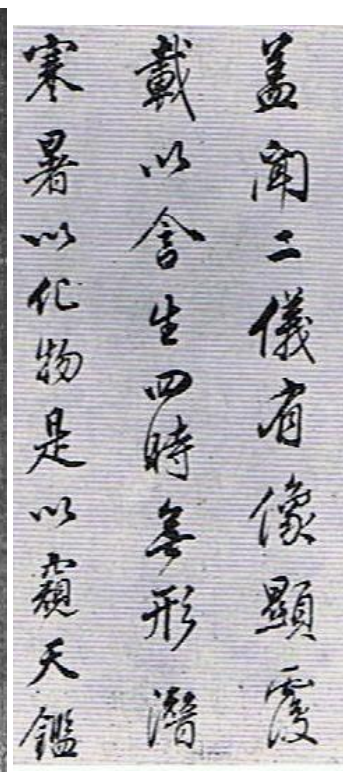 蓋聞二儀有像顯覆
載以含生四時無形潛
寒暑以化物是以窺天鑑